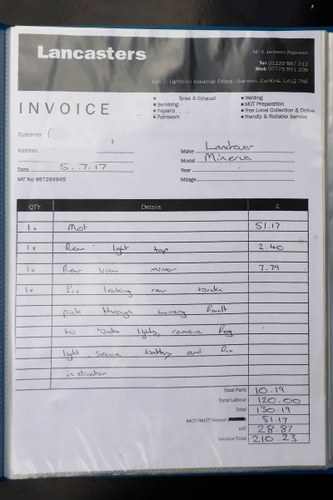 Lancasters
Mr. S. Jackson Proprietor
Tel 01229 587 312
Mob 07775 591 206
Unit 7, Lightburn Industrial Estate, Ulverston, Cumbria, LA12 7NE
INVOICE
• Tyres & Exhaust
• Servicing
• Repairs
• Paintwork
• Welding
• MOT Preparation
• Free Local Collection & Delivery
• Friendly & Reliable Service
Customer
Address
Make Landrover
Model Minerva
Date 5.7.17
Year
VAT No 857284945
Mileage
QTY Details £
1x Mot 51.17
1x Rear light 2.40
1x Rear view mirror 7.79
1x Fix leaking rear brake
pick through wiring fault
to brake lights, remove fog
light, secure battery and fix
indicator
Total Parts 10.19
Total Labour 120.00
Total 130.19
MOT/MOT Retest 51.17
VAT 28.87
Invoice Total 210.23